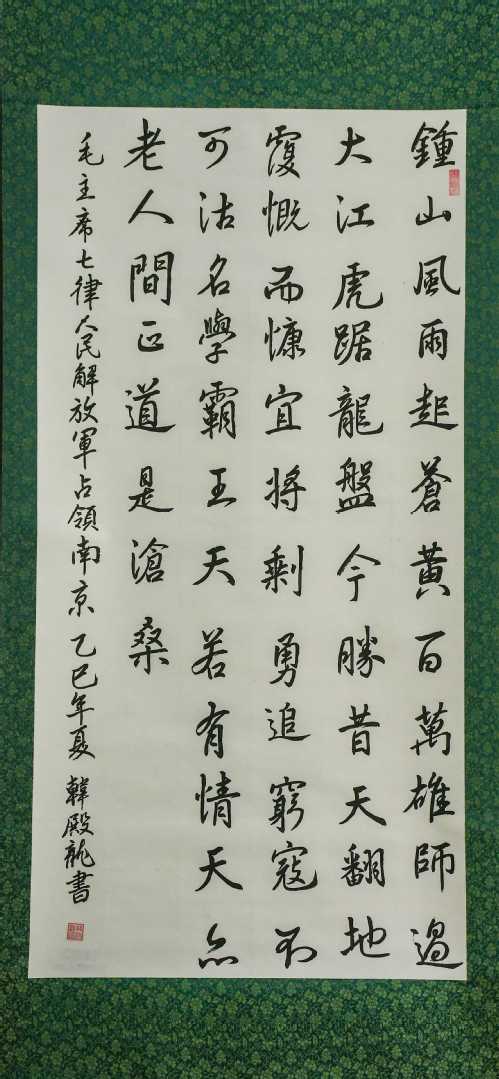 鍾山風雨起蒼黃百萬雄師過
大江虎踞龍盤今勝昔天翻地
覆慨而慷宜將剩勇追窮寇不
可沽名學霸王天若有情天亦
老人間正道是滄桑
毛主席七律人民解放軍占領南京乙巳年夏韓殿龍書